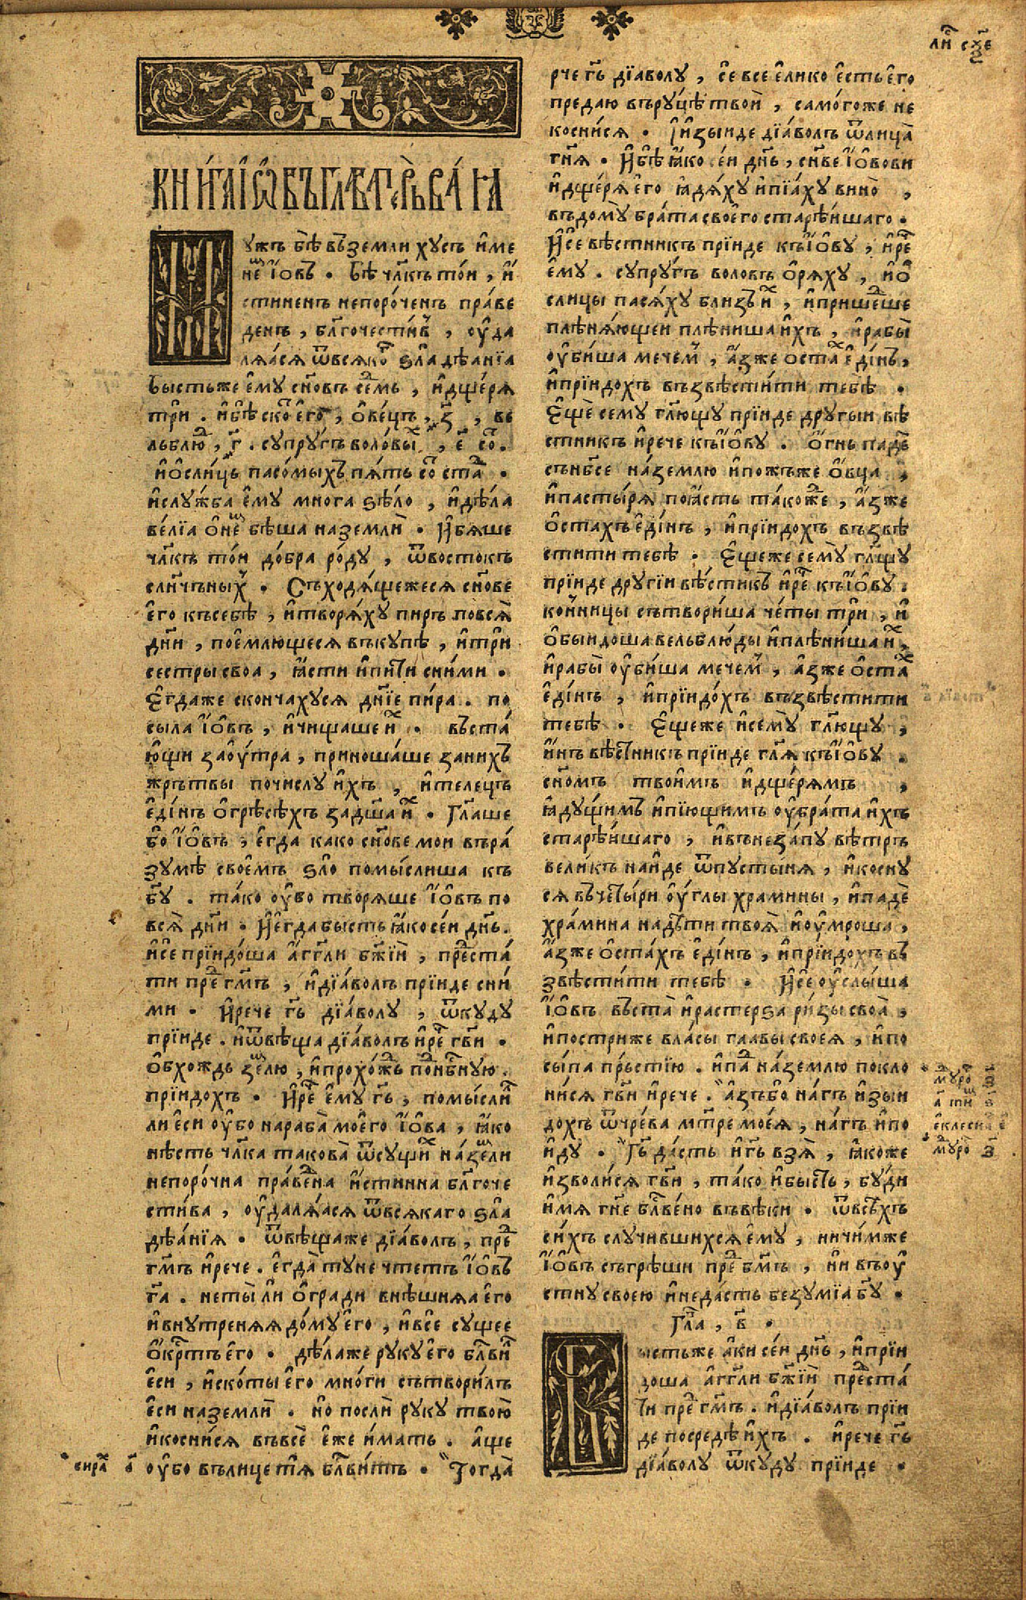 КНИ́ГА ІѠ́ВЪ ГЛАВА̀ ПЕ́РЬВАꙖ
Мꙋжъ бѣ̀ въземли хꙋсъ и҆ме
не і҆ѡ́въ . бѣ̀ чл҃къ то́и , и҆
стиненъ непоро́ченъ пра́ве
денъ , бл҃гочести́в , оу҆да
ляꙗся ѿвсяко ѕла дѣа́нїа
Бысть же е҆мꙋ сн҃овъ се́мь , и҆дще́ря
трѝ . и҆бѣ̀ ско е҆го̀ , о҆ве́цъ , з҃ , ве
льблю , г҃ . сꙋпрꙋ́гъ воло́вы , е҃ со .
и҆о҆сли́цъ пасо́мыхъ пя́ть со ста .
и҆слꙋ́жба е҆мꙋ мно́га ѕѣ́ло , и҆дѣ́ла
ве́лїа бѣ́ша наземлѝ . И҆бя́ше
чл҃къ то́и до́бра ро́дꙋ , ѿвосто́къ
сл҃нчьных . Съходя́щежеся сн҃ове
е҆го̀ късебѣ̀ , и҆творя́хꙋ пи́ръ повся̀
дн҃и , пое́млющеся въкꙋ́пѣ , и҆трѝ
сестры̀ своа̀ , ꙗ҆́сти и҆пи́ти сни́ми .
Е҆гда́же сконча́хꙋся дн҃їе пи́ра . по
сыла і҆ѡ́въ , и҆чищаше и҆х . въста
ю́щи заоу́тра , приноша́ше зани́хъ
же́ртвы почислꙋ̀ и҆́хъ , и҆теле́цъ
е҆ди́нъ о҆грѣсѣ́хъ задш҃а и҆х . Гл҃аше
бо і҆ѡ́въ , е҆гда̀ ка́ко сн҃ове моѝ въра́
зꙋмѣ свое́мъ ѕло помы́слиша къ
бг҃ꙋ . та́ко оу҆́бо творя́ше і҆ѡ́въ по
вся̀ дн҃и . И҆е҆гда̀ бы́сть ꙗ҆́ко се́и дн҃ь .
и҆сѐ прїидо́ша а҆́гг҃ли бж҃їи , преста́
ти пре гм҃ъ , и҆дїа́волъ прїи́де сни́
ми . И҆речѐ гь҃ дїа́волꙋ , ѿкꙋ́дꙋ
прїи́де . и҆ѿвѣща̀ дїа́волъ и҆ре гв҃и .
о҆бхо́ждь зе́лю , и҆прохо́ жь по нбⷭ҇ную .
прїидо́хъ . И҆ре е҆мꙋ̀ гь҃ , помы́сли
ли есѝ оу҆́бо нараба̀ моего̀ і҆ѡ́ва , ꙗ҆́ко
нѣ́сть чл҃ка такова̀ ѿсꙋщи на зе́ли
непоро́чна пра́вена и҆́стинна бл҃гоче
сти́ва , оу҆даля́ꙗся ѿвся́каго ѕла
дѣа́нїя . ѿвѣща́же дїа́волъ , пре
гм҃ъ и҆речѐ . е҆гда̀ тꙋ́не чте́тъ і҆ѡ́въ
га҃ . не ты́ ли о҆градѝ внѣшняꙗ е҆го̀
и҆внꙋ́тренꙗꙗ до́мꙋ е҆го̀ , и҆всѐ сꙋ́щее
о҆́крⷭ҇тъ е҆го̀ . дѣла́же рꙋкꙋ̀ е҆го̀ блⷭ҇ви
есѝ , и҆ско́ты е҆го̀ мно́ги сътвори́лъ
есѝ наземлѝ . но послѝ рꙋ́кꙋ твою̀
и҆косни́ся въвсѐ е҆́же и҆́мать . а҆́ще
оу҆́бо вълице тя̀ блⷭ҇ви́тъ . Тогда̀
сира
ли сх҃е
рче гь҃ дїа́волꙋ , сѐ всѐ е҆ли́ко е҆́сть е҆го̀
предаю̀ въ рꙋцѣ̀ твоѝ , само́гоже не
косни́ся . И҆и҆зы́иде дїа́волъ ѿлица̀
гн҃я . И҆бѣ̀ ꙗ҆́ко се́и дн҃ь , сн҃ве і҆ѡ́вови
и҆дще́ря е҆го̀ ꙗ҆дя́хꙋ и҆пїа́хꙋ вино̀ ,
въдомꙋ̀ бра́та своего̀ старѣ́ишаго .
И҆сѐ вѣ́стникъ прїи́де къ і҆ѡ́вꙋ , и҆ре
е҆мꙋ . сꙋпрꙋ́гъ воло́въ о҆ря́хꙋ , и҆о҆
сли́цы пася́хꙋ близъ и҆х , и҆прише́ше
плѣня́ющеи плѣни́ша и҆́хъ , и҆рабы̀
оу҆би́ша мече́м , а҆́зже оста е҆ди́нъ ,
и҆прїидо́хъ възвѣсти́ти тебѣ̀ .
Е҆щѐ семꙋ гл҃ющꙋ прїи́де дрꙋгы́и вѣ́
стникъ и҆речѐ къ і҆ѡ́вꙋ . о҆́гнь падѐ
сънб҃се на́землю и҆пожъже о҆вца ,
и҆па́стыря поꙗ҆́сть та́коже , а҆́зже
о҆ста́хъ е҆ди́нъ , и҆прїидо́хъ възвѣ
сти́ти тебѣ̀ . Е҆ще́же семꙋ̀ гл҃щꙋ
прїи́де дрꙋгі́и вѣ́стикъ и҆ре къ і҆ѡ́вꙋ .
ко́нницы сътвори́ша че́ты трѝ , и҆
о҆быидо́ша вельблю́ды и҆плѣни́ша и҆х ,
и҆рабы̀ оу҆би́ша мече́м , а҆зже о҆ста
е҆ди́нъ , и҆прїидо́хъ възвѣсти́ти
тебѣ̀ . Е҆ще́же и҆семꙋ̀ гл҃ющꙋ ,
и҆́нъ вѣ́стникъ прїи́де гл҃я къ і҆ѡ́вꙋ .
сн҃омъ твои́мъ и҆дще́рямъ ,
ꙗ҆дꙋ́щимъ и҆пїю́щимъ оу҆бра́та и҆́хъ
старѣ́ишаго , и҆вънеза́пꙋ вѣ́тръ
вели́къ наи́де ѿпꙋсты́ня , и҆коснꙋ́
ся въчеты́ри оу҆́глы хра́мины , и҆падѐ
хра́мина надѣ́ти твоя̀ и҆оу҆мро́ша ,
а҆́зже о҆ста́хъ е҆ди́нъ , и҆прїидо́хъ въ
звѣсти́ти тебѣ̀ . И҆сѐ оу҆слы́ша
і҆ѡ́въ въста̀ и҆растерза ри́зы своа̀ ,
и҆постриже вла́сы главы̀ своеꙗ̀ , и҆по
сы́па пръ́стїю . и҆па на́землю покло
ни́ся гв҃и и҆речѐ . а҆́зъ бо на́гъ и҆зыи
до́хъ ѿчре́ва мт҃ре мое́я , на́гъ и҆по
идꙋ̀ . гь҃ да́сть и҆гь҃ взя̀ , ꙗ҆́коже
и҆зво́лися гв҃и , та́ко и҆бы́сть , бꙋ́ди
и҆́мя гн҃е блⷭ҇ве́но въвѣ́ки . ѿвсѣ́хъ
си́хъ слꙋчи́вшихся е҆мꙋ̀ , ничи́мже
і҆ѡ́въ съгрѣшѝ пре бм҃ъ , ни въоу҆
стнꙋ̀ свое́ю и҆неда́сть безꙋ́мїа бг҃ꙋ .
Гла , в҃ .
Бы́стьже а҆́ки се́и дн҃ь , и҆прїи
доша а҆гг҃ли бж҃їи преста́
ти пре гм҃ъ . и҆дїа́волъ прїи
де посредѣ̀ и҆́хъ . и҆речѐ гь҃
дїа́волꙋ ѿкꙋ́дꙋ прїи́де .
еклеси